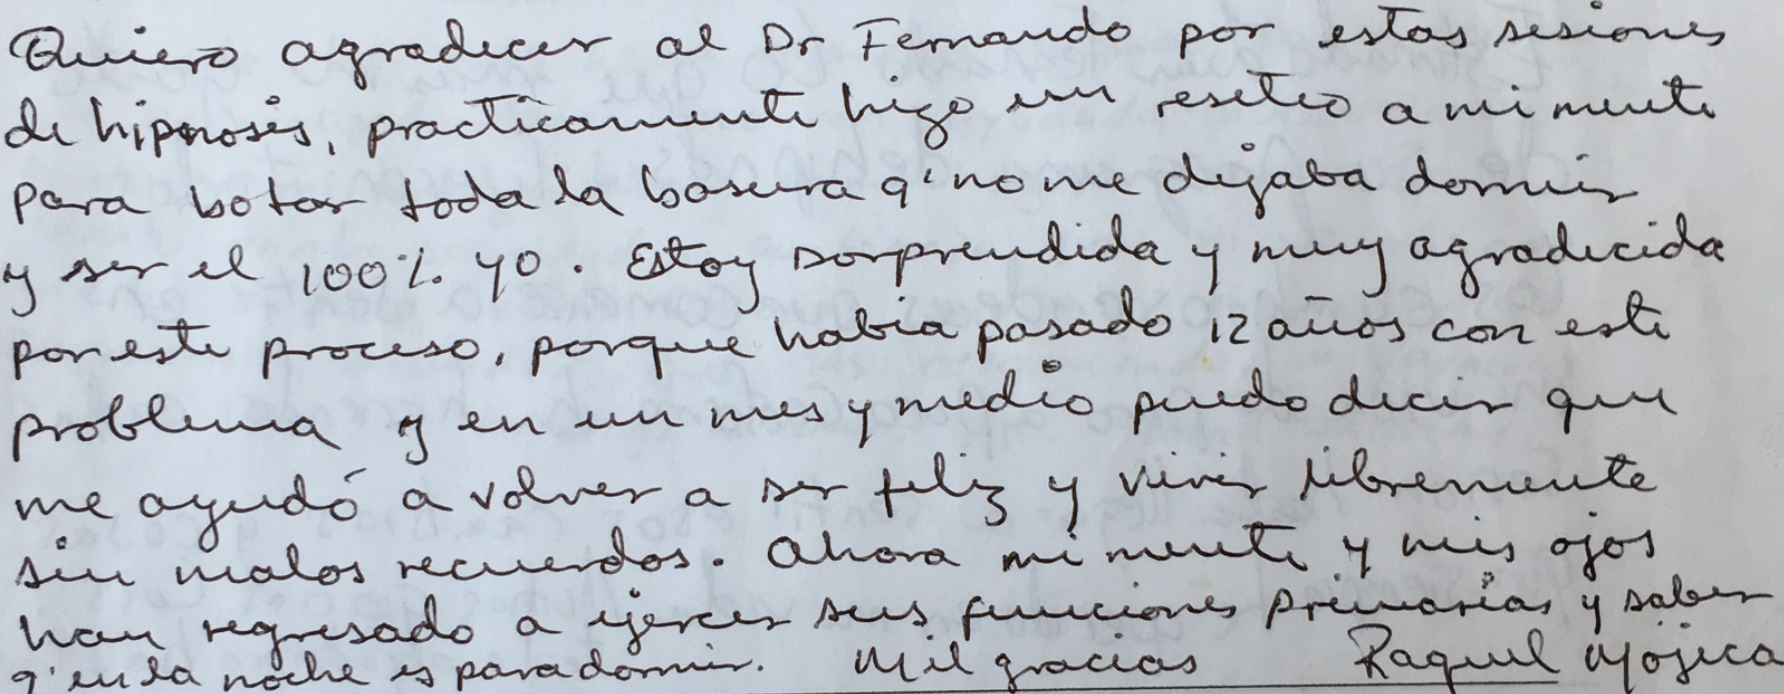 Quiero agradecer al Dr Fernando por estas sesiones
de hipnosis, practicamente hizo un reseteo a mi mente
para botar toda la basura q' no me dejaba dormir
y ser el 100% yo. Estoy sorprendida y muy agradecida
por este proceso, porque habia pasado 12 años con este
problema y en un mes y medio puedo decir que
me ayudó a volver a ser feliz y vivir libremente
sin malos recuerdos. Ahora mi mente y mis ojos
han regresado a ejercer sus funciones primarias y saber
q' en la noche es para dormir. Mil gracias Raquel Mojica